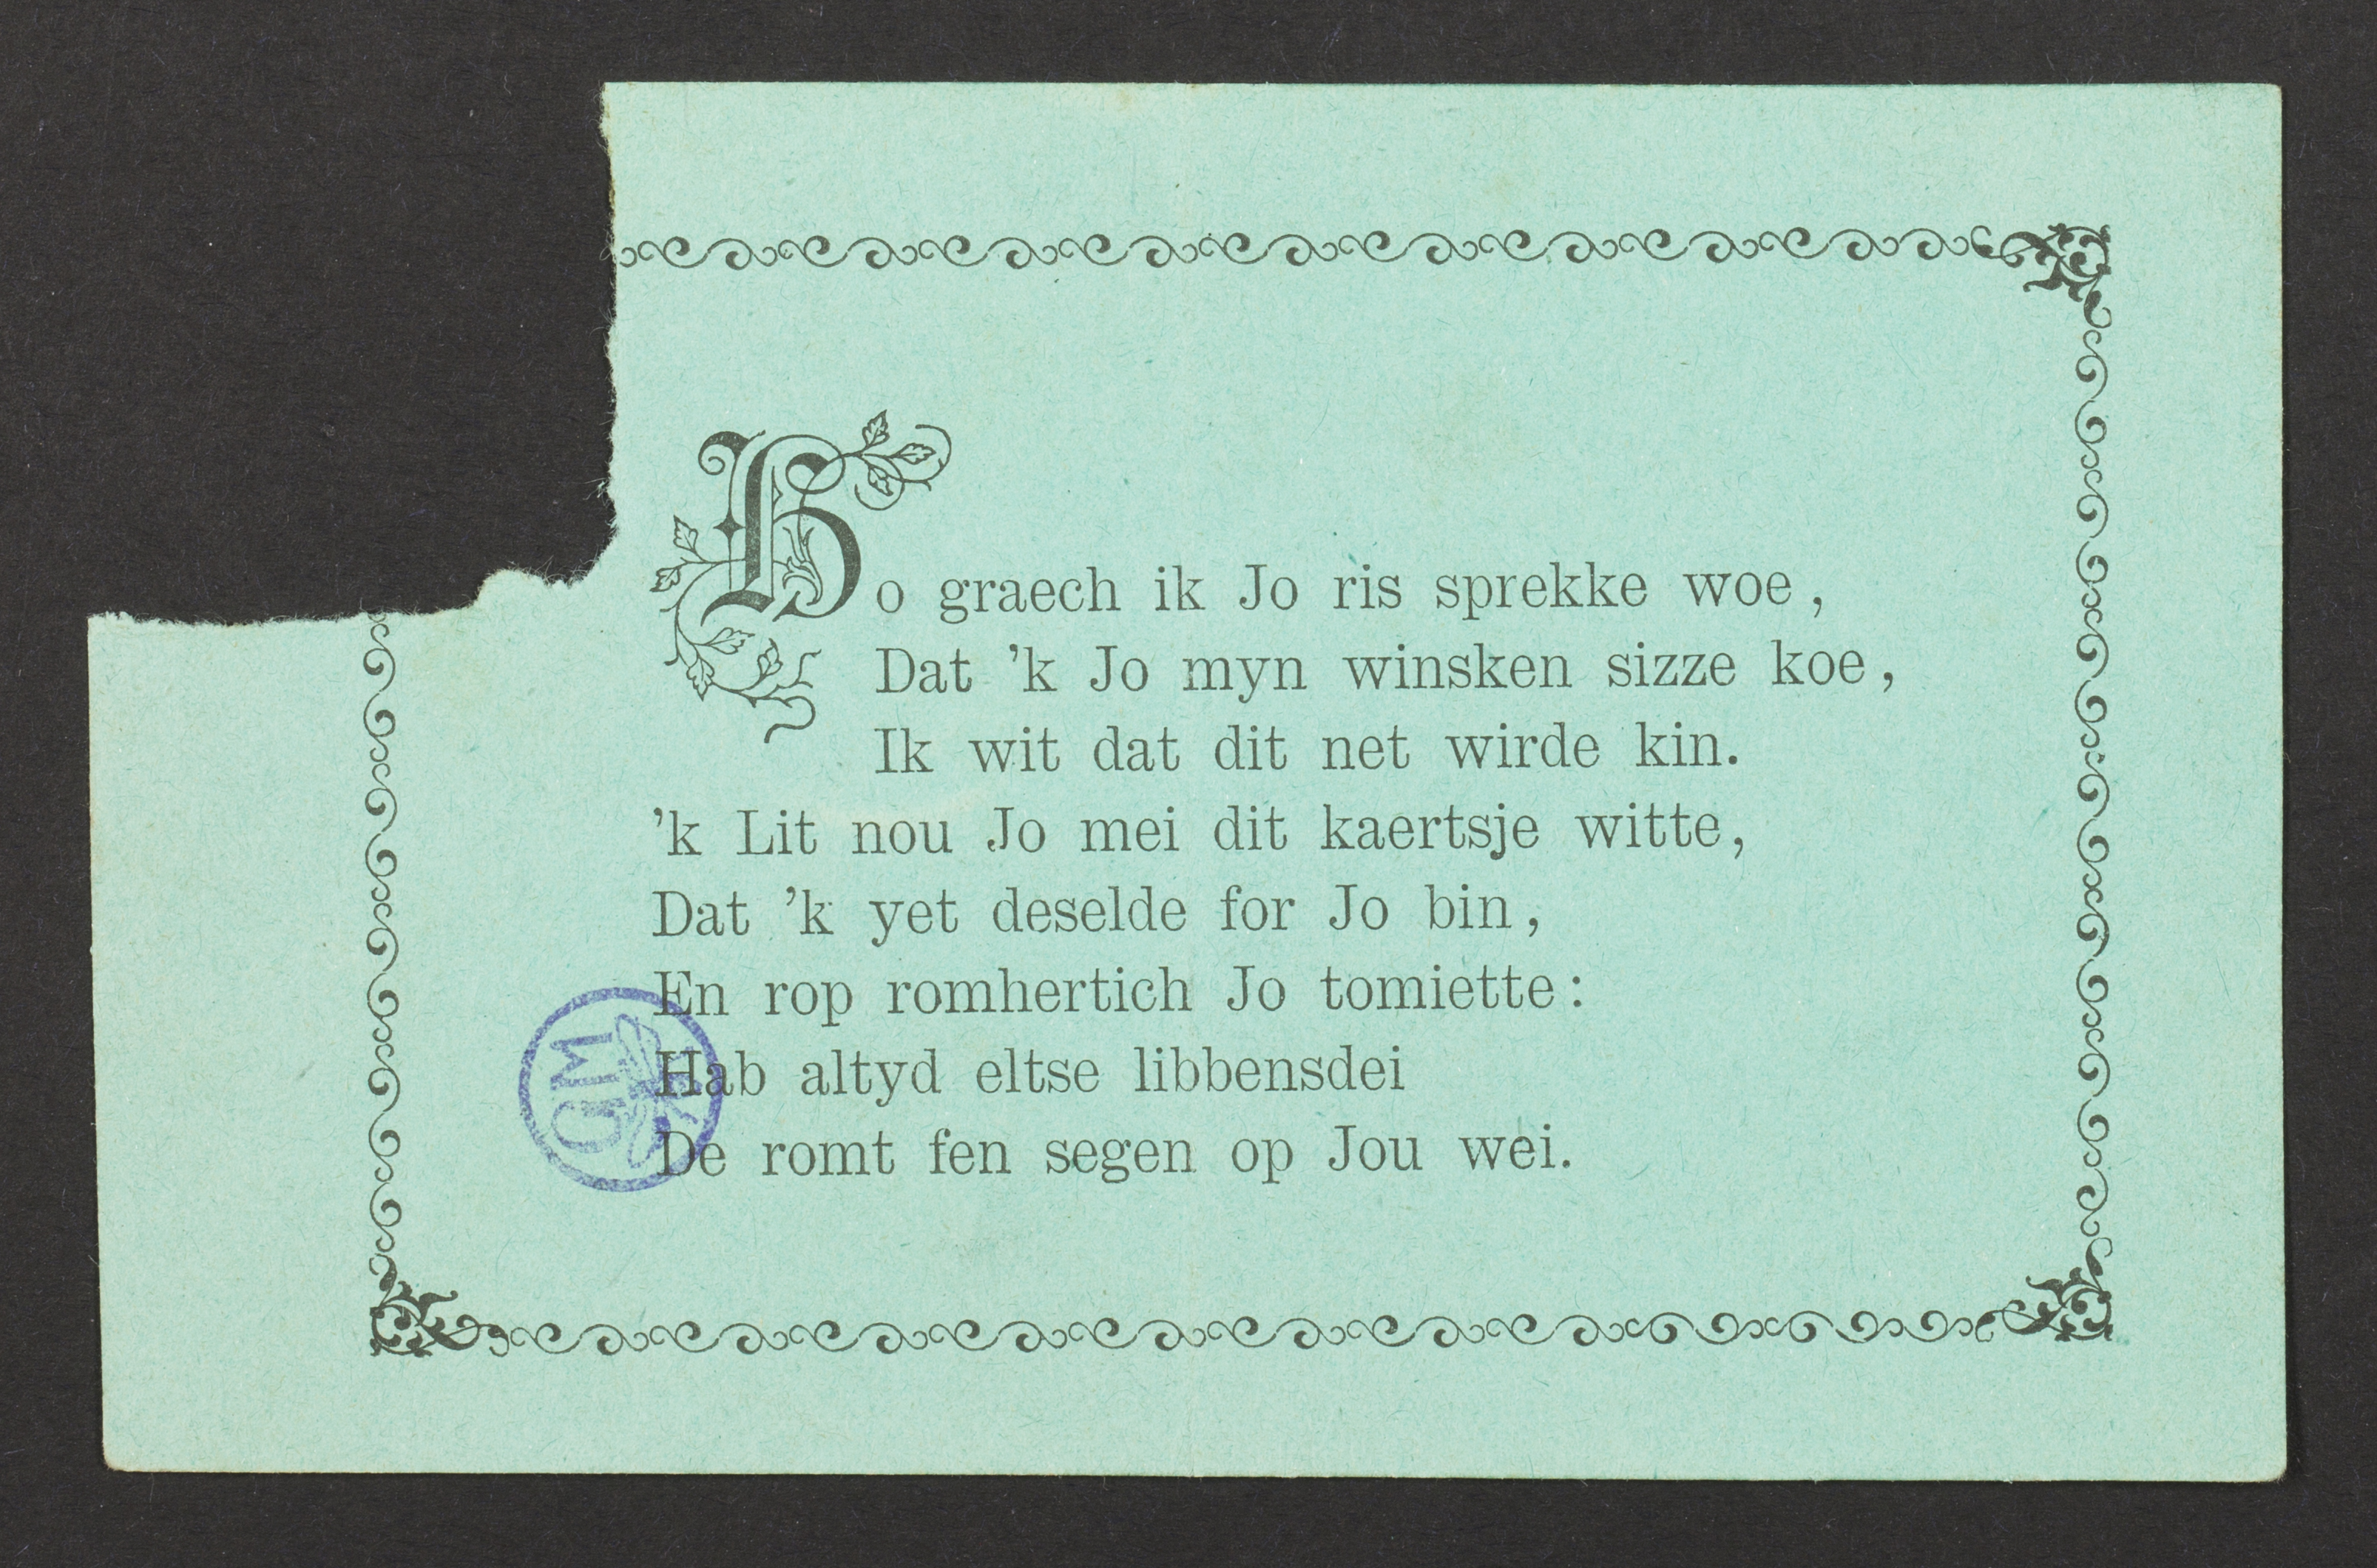 Ho graech ik Jo ris sprekke woe,
Dat 'k Jo myn winsken sizze koe,
Ik wit dat dit net wirde kin.
'k Lit nou Jo mei dit kaertsje witte,
Dat 'k yet deselde for Jo bin,
En rop romhertich Jo tomiette:
Hab altyd eltse libbensdei
De romt fen segen op Jou wei.
GM